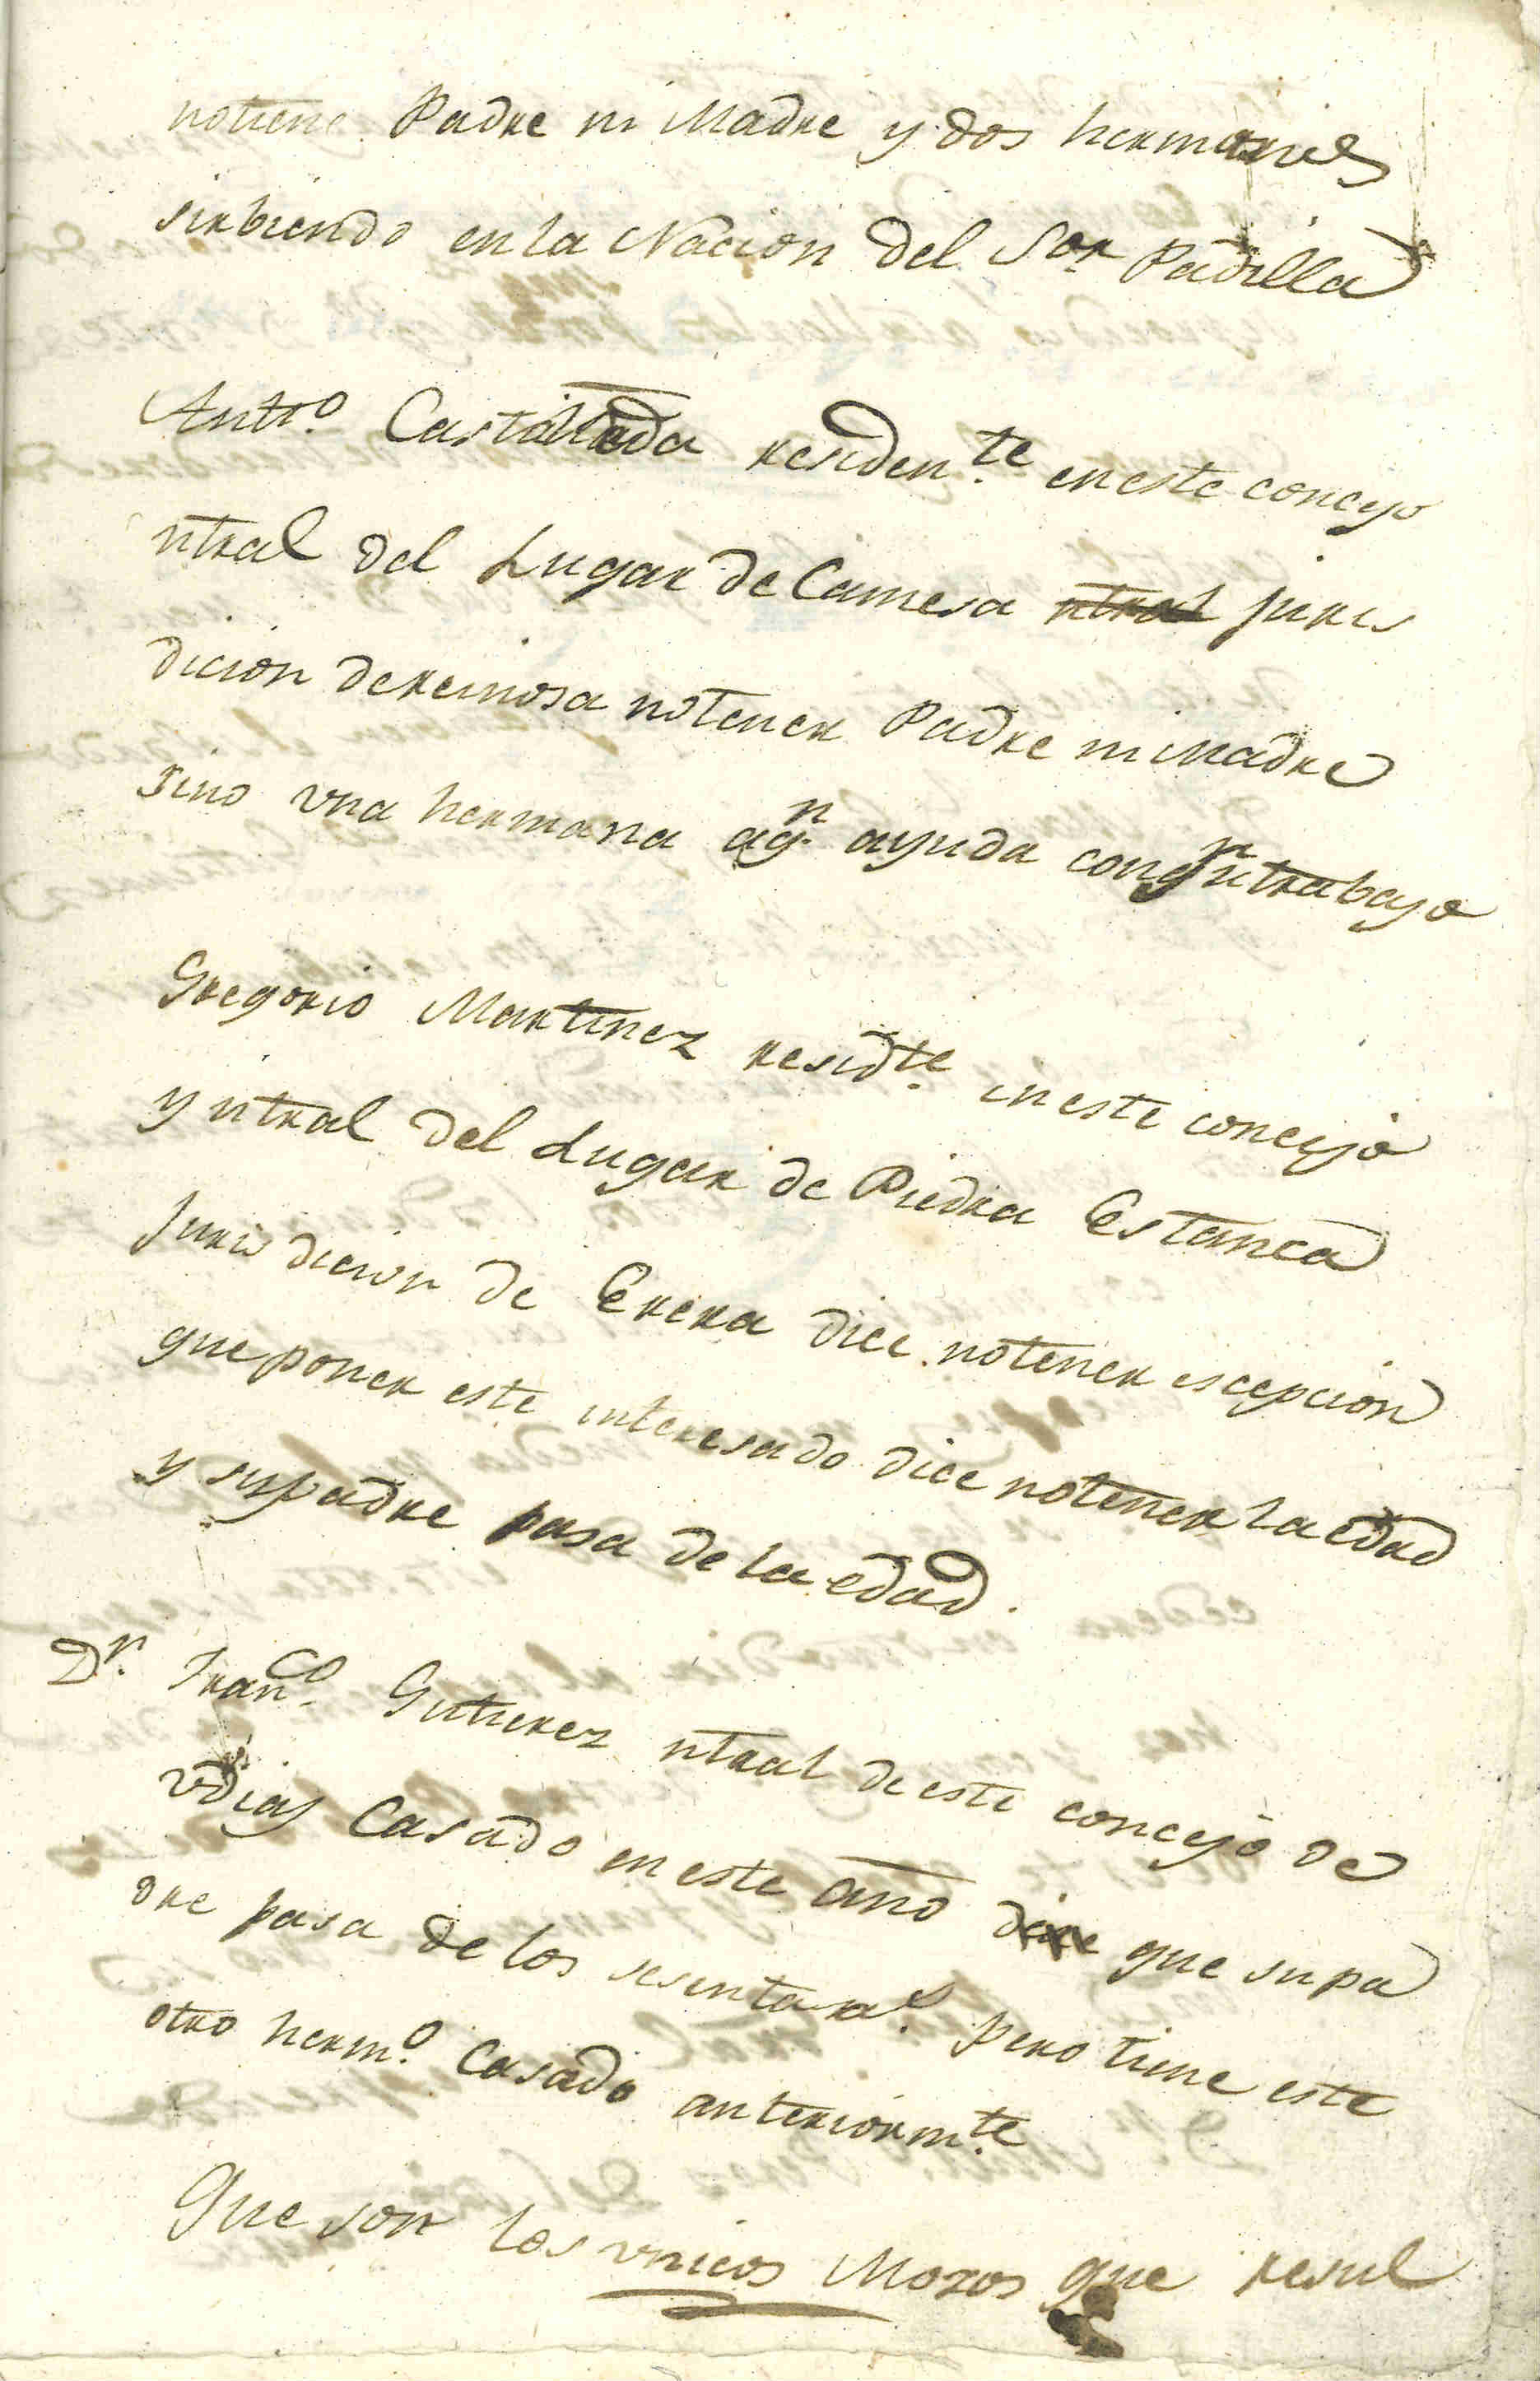 notiene Padre ni Madre y dos hermanos
sirbiendo en la Nacion del Sor Padilla
Antto. Castañeda residen.te en este concejo
ntral del Lugar de Camesa ntral juris
dicion de reinosa no tener Padre ni Madre
sino vna hermana aqn. ayuda con su trabajo
Gregorio Martinez residte. en este concejo
y ntral del Lugar de Piedra Estanca
Jurisdicion de Erera dice no tener escepcion
que poner este interesado dice no tener la edad
y supadre pasa de la edad.
Dn. Franco. Gutierrez ntral de este concejo de
vdias Casado en este año dice que su pa
dre pasa de los sesenta as. pero tiene este
otro hermo. Casado anteriormte.
Que son los vnicos Mozos que resul